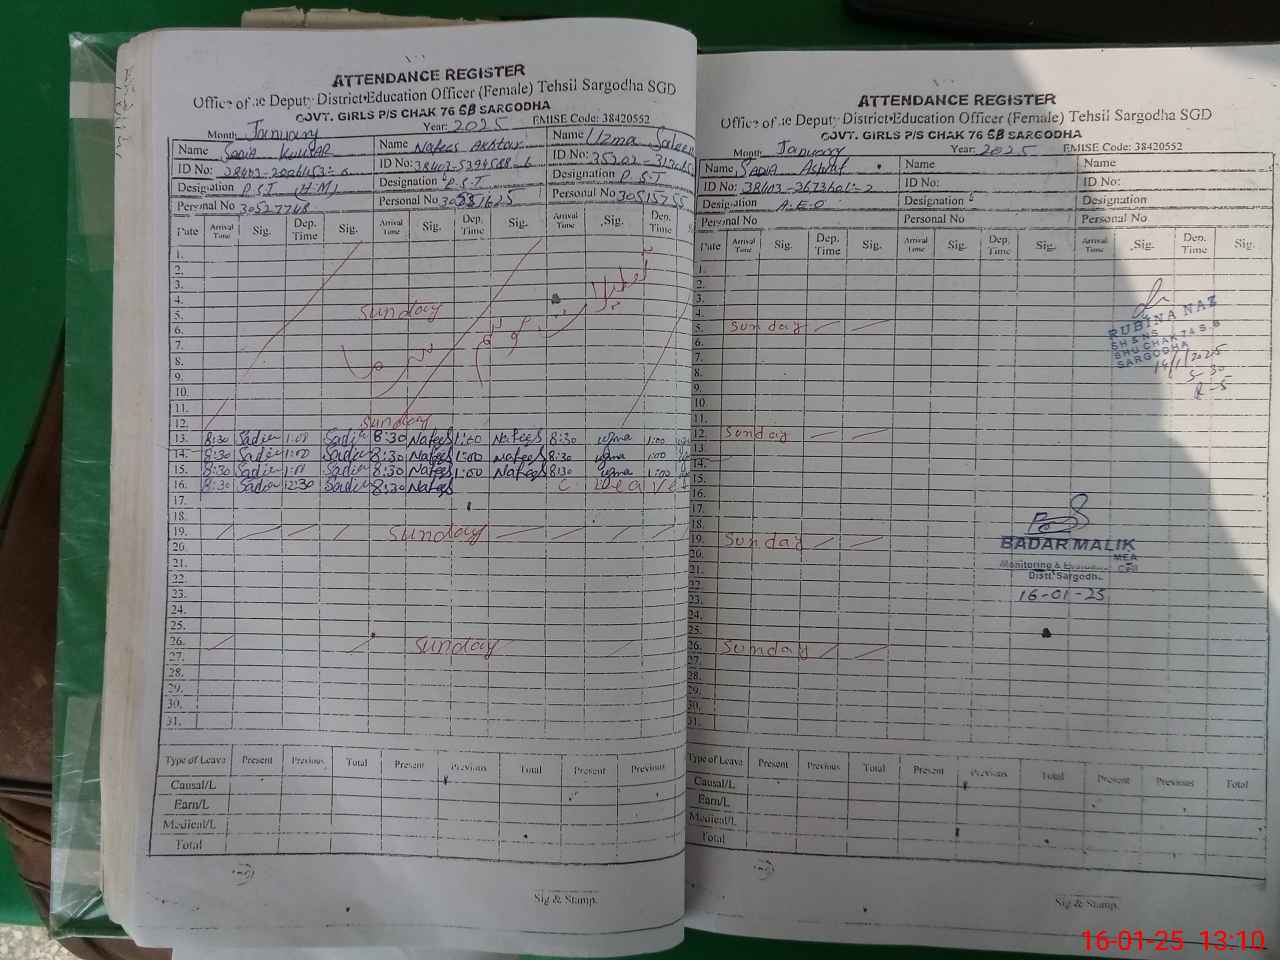 ATTENDANCE REGISTER
Office of the Deputy District Education Officer (Female) Tehsil Sargodha SGD
GOVT. GIRLS P/S CHAK 76 SB SARGODHA
Month January Year: 2025 EMISE Code: 38420552
Name Sadia Kousar Name Nafees Akhtar Name Uzma Saleem
ID No: ID No: ID No:
Designation P.S.T (H.M) Designation P.S.T Designation P.S.T
Personal No 30527748 Personal No 30551625 Personal No 30515755
Date Arrival Time Sig. Dep. Time Sig. Arrival Time Sig. Dep. Time Sig. Arrival Time Sig. Dep. Time
1.
2.
3.
4.
5. Sunday
6.
7.
8.
9.
10.
11.
12. Sunday
13. 8:30 Sadia 1:00 Sadia 8:30 Nafees 1:00 Nafees 8:30 uzma 1:00
14. 8:30 Sadia 1:00 Sadia 8:30 Nafees 1:00 Nafees 8:30 uzma 1:00
15. 8:30 Sadia 1:00 Sadia 8:30 Nafees 1:00 Nafees 8:30 uzma 1:00
16. 8:30 Sadia 12:30 Sadia 8:30 Nafees C. Leave
17.
18.
19. Sunday
20.
21.
22.
23.
24.
25.
26. Sunday
27.
28.
29.
30.
31.
Type of Leave Present Previous Total Present Previous Total Present Previous
Causal/L
Earn/L
Medical/L
Total
Sig & Stamp.
ATTENDANCE REGISTER
Office of the Deputy District Education Officer (Female) Tehsil Sargodha SGD
GOVT. GIRLS P/S CHAK 76 SB SARGODHA
Month January Year: 2025 EMISE Code: 38420552
Name Sadia Ashraf Name Name
ID No: ID No: ID No:
Designation A.E.O Designation Designation
Personal No Personal No Personal No
Date Arrival Time Sig. Dep. Time Sig. Arrival Time Sig. Dep. Time Sig. Arrival Time Sig. Dep. Time Sig.
1.
2.
3.
4.
5. Sunday
6.
7.
8.
9.
10.
11.
12. Sunday
13.
14.
15.
16.
17.
18.
19. Sunday
20.
21.
22.
23.
24.
25.
26. Sunday
27.
28.
29.
30.
31.
RUBINA NAZ
SARGODHA
14/1/2025
BADAR MALIK
MEA
Monitoring &
Distt. Sargodha
16-01-25
Type of Leave Present Previous Total Present Previous Total Present Previous Total
Causal/L
Earn/L
Medical/L
Total
Sig & Stamp.
16-01-25 13:10